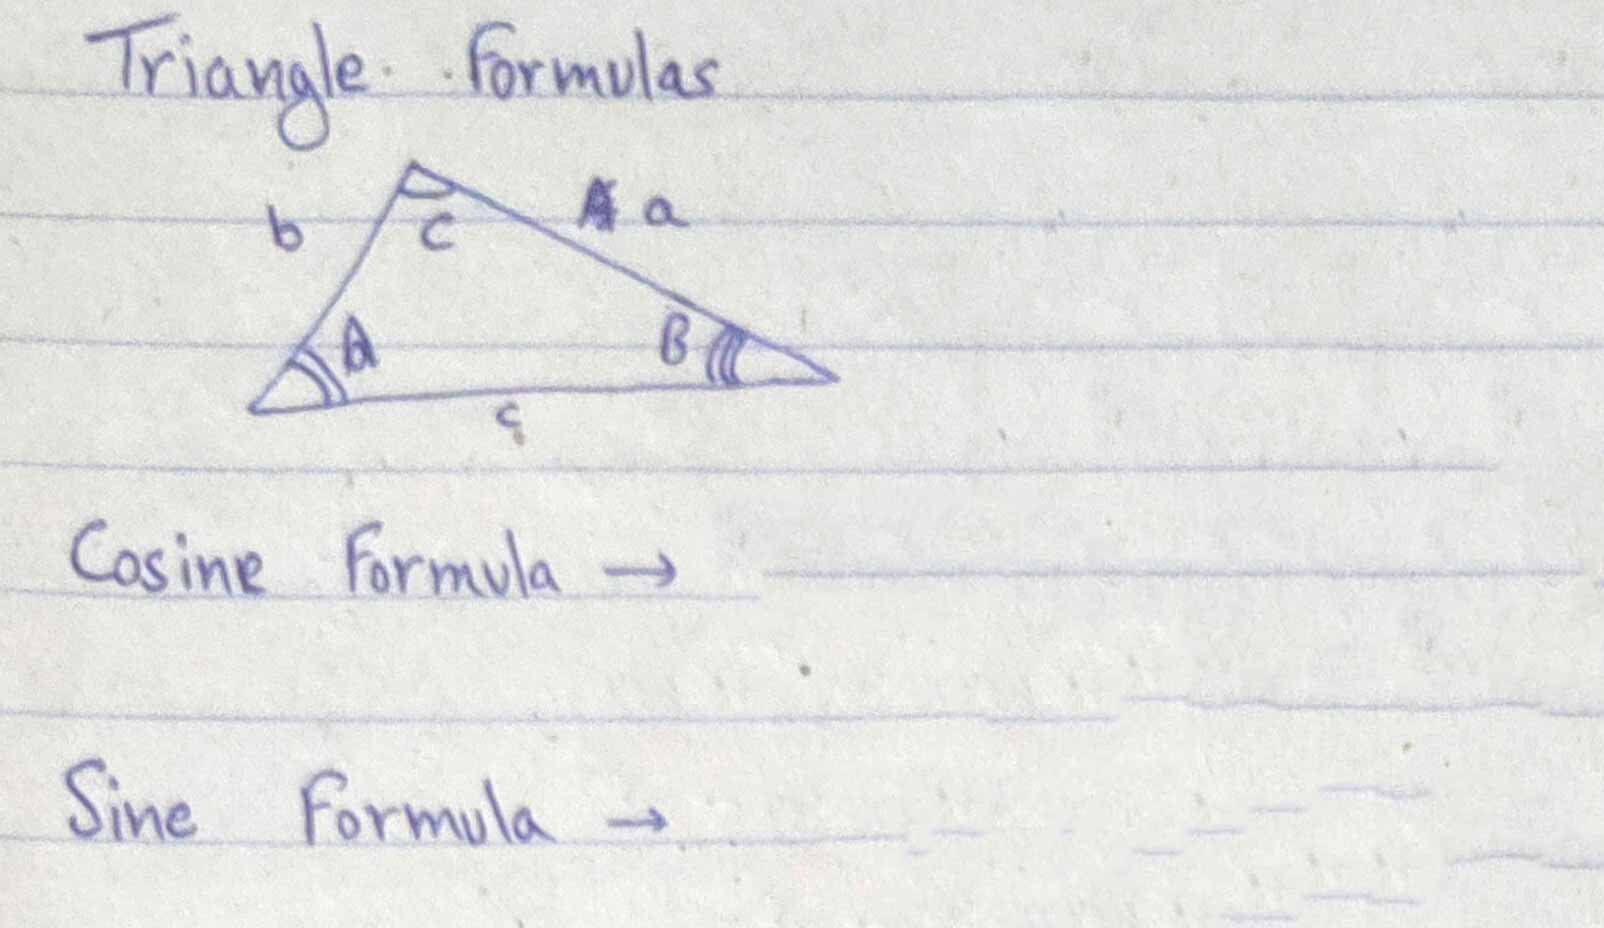 Triangle Formulas
b C a
A B
c
Cosine Formula →
Sine Formula →